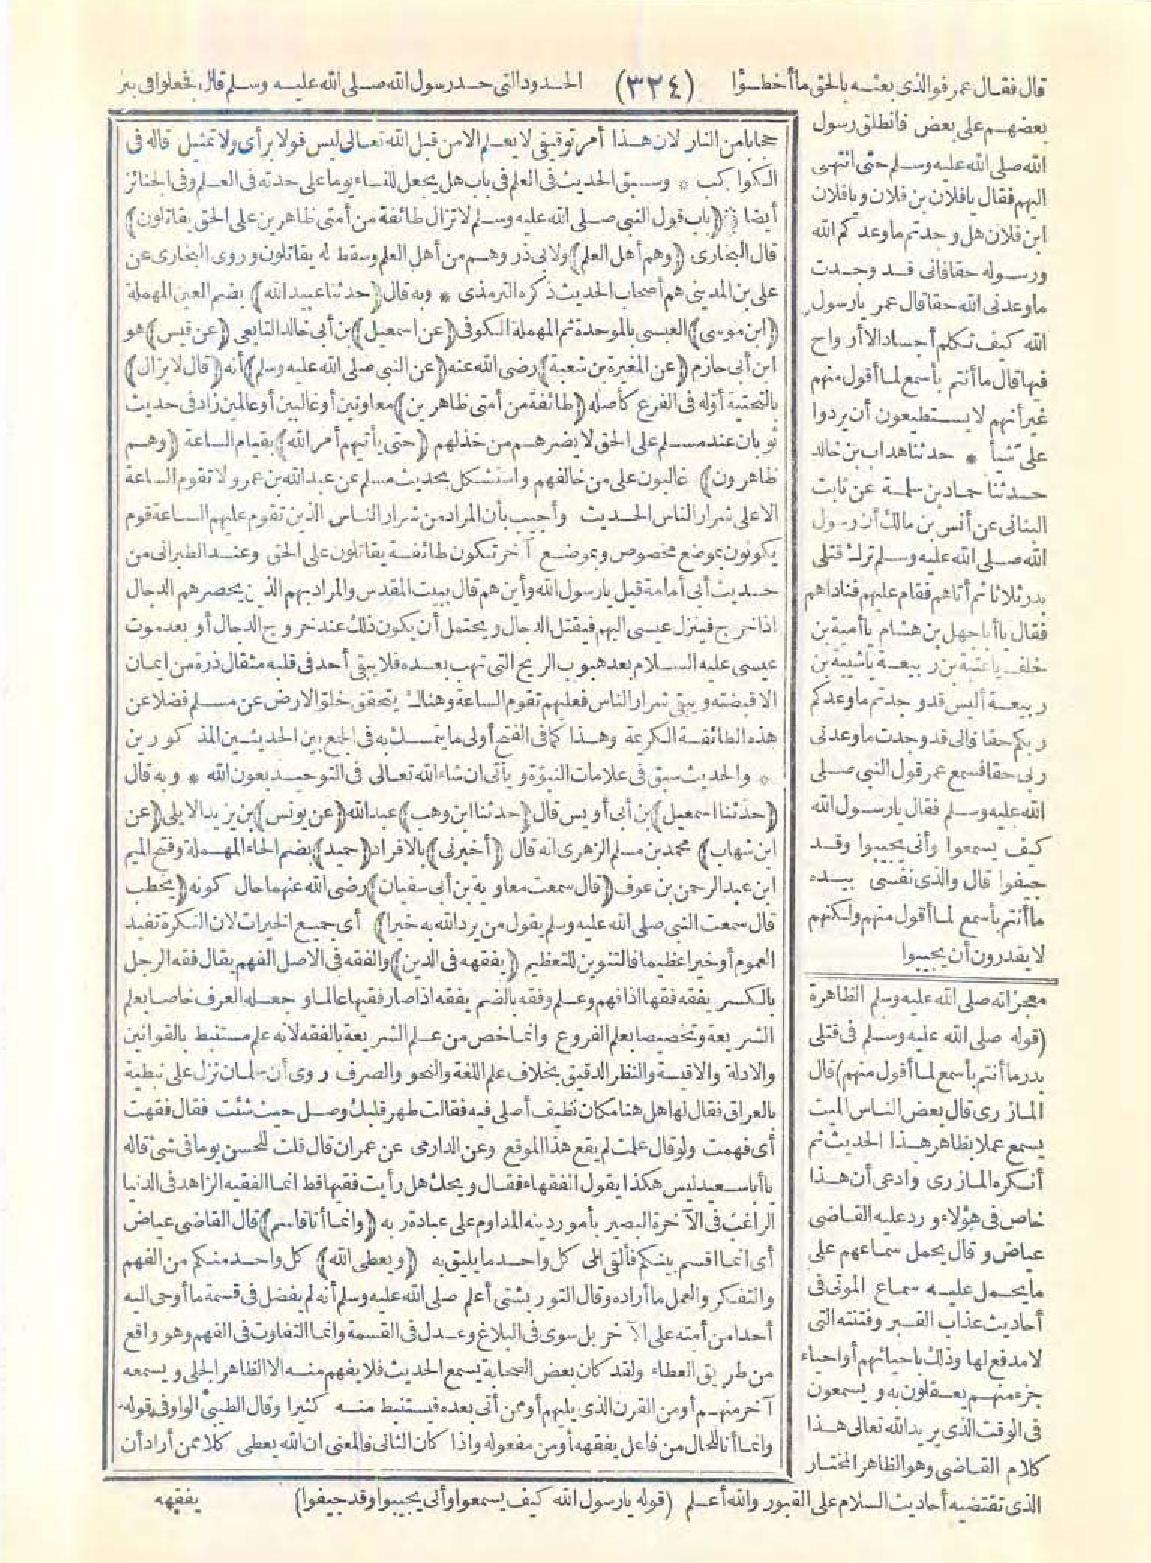 قال فقال عمر فوالذى بعثه بالحق ماأخطؤا (٣٢٤) الحدود التى حد رسول الله صلى الله عليه وسلم قال فجعلوا فى بئر
بعضهم على بعض فانطلق رسول
الله صلى الله عليه وسلم حتى انتهى
اليهم فقال يافلان بن فلان ويافلان
ابن فلان هل وجدتم ماوعدكم الله
ورسوله حقا فانى قد وجدت
ماوعدنى الله حقا قال عمر يارسول
الله كيف تكلم أجسادا لاأرواح
فيها قال ماأنتم بأسمع لما أقول منهم
غير أنهم لا يستطيعون أن يردوا
على شيأ * حدثنا هداب بن خالد
حدثنا حماد بن سلمة عن ثابت
البنانى عن أنس بن مالك أن رسول
الله صلى الله عليه وسلم ترك قتلى
بدر ثلاثا ثم أتاهم فقام عليهم فناداهم
فقال ياأباجهل بن هشام ياأمية بن
خلف ياعتبة بن ربيعة ياشيبة بن
ربيعة أليس قد وجدتم ماوعدكم
ربكم حقا فانى قد وجدت ماوعدنى
ربى حقا فسمع عمر قول النبى صلى
الله عليه وسلم فقال يارسول الله
كيف يسمعوا وأنى يجيبوا وقد
جيفوا قال والذى نفسى بيده
ماأنتم بأسمع لما أقول منهم ولكنهم
لايقدرون أن يجيبوا
معجزاته صلى الله عليه وسلم الظاهرة
(قوله صلى الله عليه وسلم فى قتلى
بدر ماأنتم بأسمع لما أقول منهم) قال
المازرى قال بعض الناس الميت
يسمع عملا بظاهر هذا الحديث ثم
أنكره المازرى وادعى أن هذا
خاص فى هؤلاء ورد عليه القاضى
عياض وقال يحمل سماعهم على
مايحمل عليه سماع الموتى فى
أحاديث عذاب القبر وفتنته التى
لامدفع لها وذلك باحيائهم أو احياء
جزء منهم يعقلون به ويسمعون
فى الوقت الذى يريد الله تعالى هذا
كلام القاضى وهو الظاهر المختار
الذى تقتضيه أحاديث السلام على القبور والله أعلم (قوله يارسول الله كيف يسمعوا وأنى يجيبوا وقد جيفوا)
حجابا من النار لان هذا أمر توقيفى لا يعلم الا من قبل الله تعالى ليس قولا برأى ولا تمثيل قاله فى
الكواكب * وسبق الحديث فى العلم فى باب هل يجعل للنساء يوما على حدته فى العلم وفى الجنائز
أيضا (باب قول النبى صلى الله عليه وسلم لا تزال طائفة من أمتى ظاهرين على الحق يقاتلون)
قال البخارى (وهم أهل العلم) ولابى ذر وهم من أهل العلم وسقط له يقاتلون وروى البخارى عن
على بن المدينى هم أصحاب الحديث ذكره الترمذى * وبه قال (حدثنا عبيد الله) بضم العين المهملة
(ابن موسى) العبسى بالموحدة ثم المهملة الكوفى (عن اسمعيل) بن أبى خالد التابعى (عن قيس) هو
ابن أبى حازم (عن المغيرة بن شعبة) رضى الله عنه (عن النبى صلى الله عليه وسلم) أنه (قال لا يزال)
بالتحتية أوله فى الفرع كأصله (طائفة من أمتى ظاهرين) معاونين أو غالبين أو عالين زاد فى حديث
ثوبان عند مسلم على الحق لا يضرهم من خذلهم (حتى يأتيهم أمر الله) بقيام الساعة (وهم
ظاهرون) غالبون على من خالفهم واستشكل بحديث مسلم عن عبد الله بن عمرو لا تقوم الساعة
الا على شرار الناس الحديث وأجيب بأن المراد من شرار الناس الذين تقوم عليهم الساعة قوم
يكونون بموضع مخصوص وبموضع آخر تكون طائفة يقاتلون على الحق وعند الطبرانى من
حديث أبى أمامة قيل يارسول الله وأين هم قال ببيت المقدس والمراد بهم الذين يحصرهم الدجال
اذا خرج فينزل عيسى اليهم فيقتل الدجال ويحتمل أن يكون ذلك عند خروج الدجال أو بعد موت
عيسى عليه السلام بعد هبوب الريح التى تهب بعده فلا يبقى أحد فى قلبه مثقال ذرة من ايمان
الا قبضته ويبقى شرار الناس فعليهم تقوم الساعة وهناك يتحقق خلو الارض عن مسلم فضلا عن
هذه الطائفة الكريمة وهذا كما فى الفتح أولى ما يتمسك به فى الجمع بين الحديثين المذكورين
* والحديث سبق فى علامات النبوة ويأتى ان شاء الله تعالى فى التوحيد بعون الله * وبه قال
(حدثنا اسمعيل) بن أبى أويس قال (حدثنا ابن وهب) عبد الله (عن يونس) بن يزيد الايلى (عن
ابن شهاب) محمد بن مسلم الزهرى انه قال (أخبرنى) بالافراد (حميد) بضم الحاء المهملة وفتح الميم
ابن عبد الرحمن بن عوف (قال سمعت معاوية بن أبى سفيان) رضى الله عنهما حال كونه (يخطب
قال سمعت النبى صلى الله عليه وسلم يقول من يرد الله به خيرا) أى جميع الخيرات لان النكرة تفيد
العموم أو خيرا عظيما فالتنوين للتعظيم (يفقهه فى الدين) والفقه فى الاصل الفهم يقال فقه الرجل
بالكسر يفقه فقها اذا فهم وعلم وفقه بالضم يفقه اذا صار فقيها عالما وجعله العرف خاصا بعلم
الشريعة وتخصيصا بعلم الفروع وانما خص من علم الشريعة بالفقه لانه علم مستنبط بالقوانين
والادلة والاقيسة والنظر الدقيق بخلاف علم اللغة والنحو والصرف روى أن سلمان نزل على نبطية
بالعراق فقال لها هل هنا مكان نظيف أصلى فيه فقالت طهر قلبك وصل حيث شئت فقال فقهت
أى فهمت ولو قال علمت لم يقع هذا الموقع وعن الدارمى عن عمران قال قلت للحسن يوما فى شئ قاله
ياأباسعيد ليس هكذا يقول الفقهاء فقال ويحك هل رأيت فقيها قط انما الفقيه الزاهد فى الدنيا
الراغب فى الآخرة البصير بأمور دينه المداوم على عبادة ربه (وانما أنا قاسم) قال القاضى عياض
أى انما اقسم بينكم فألقى الى كل واحد ما يليق به (ويعطى الله) كل واحد منكم من الفهم
والتفكر والعمل ماأراده وقال التوربشتى أعلم صلى الله عليه وسلم أنه لم يفضل فى قسمة ماأوحى اليه
أحدا من أمته على الآخر بل سوى فى البلاغ وعدل فى القسمة وانما التفاوت فى الفهم وهو واقع
من طريق العطاء ولقد كان بعض الصحابة يسمع الحديث فلا يفهم منه الا الظاهر الجلى ويسمعه
آخر منهم أو من القرن الذى يليهم أو ممن أتى بعده فيستنبط منه كثيرا وقال الطيبى الواو فى قوله
وانما أنا للحال من فاعل يفقهه أو من مفعوله واذا كان الثانى فالمعنى ان الله يعطى كلا ممن أراد أن
يفقهه